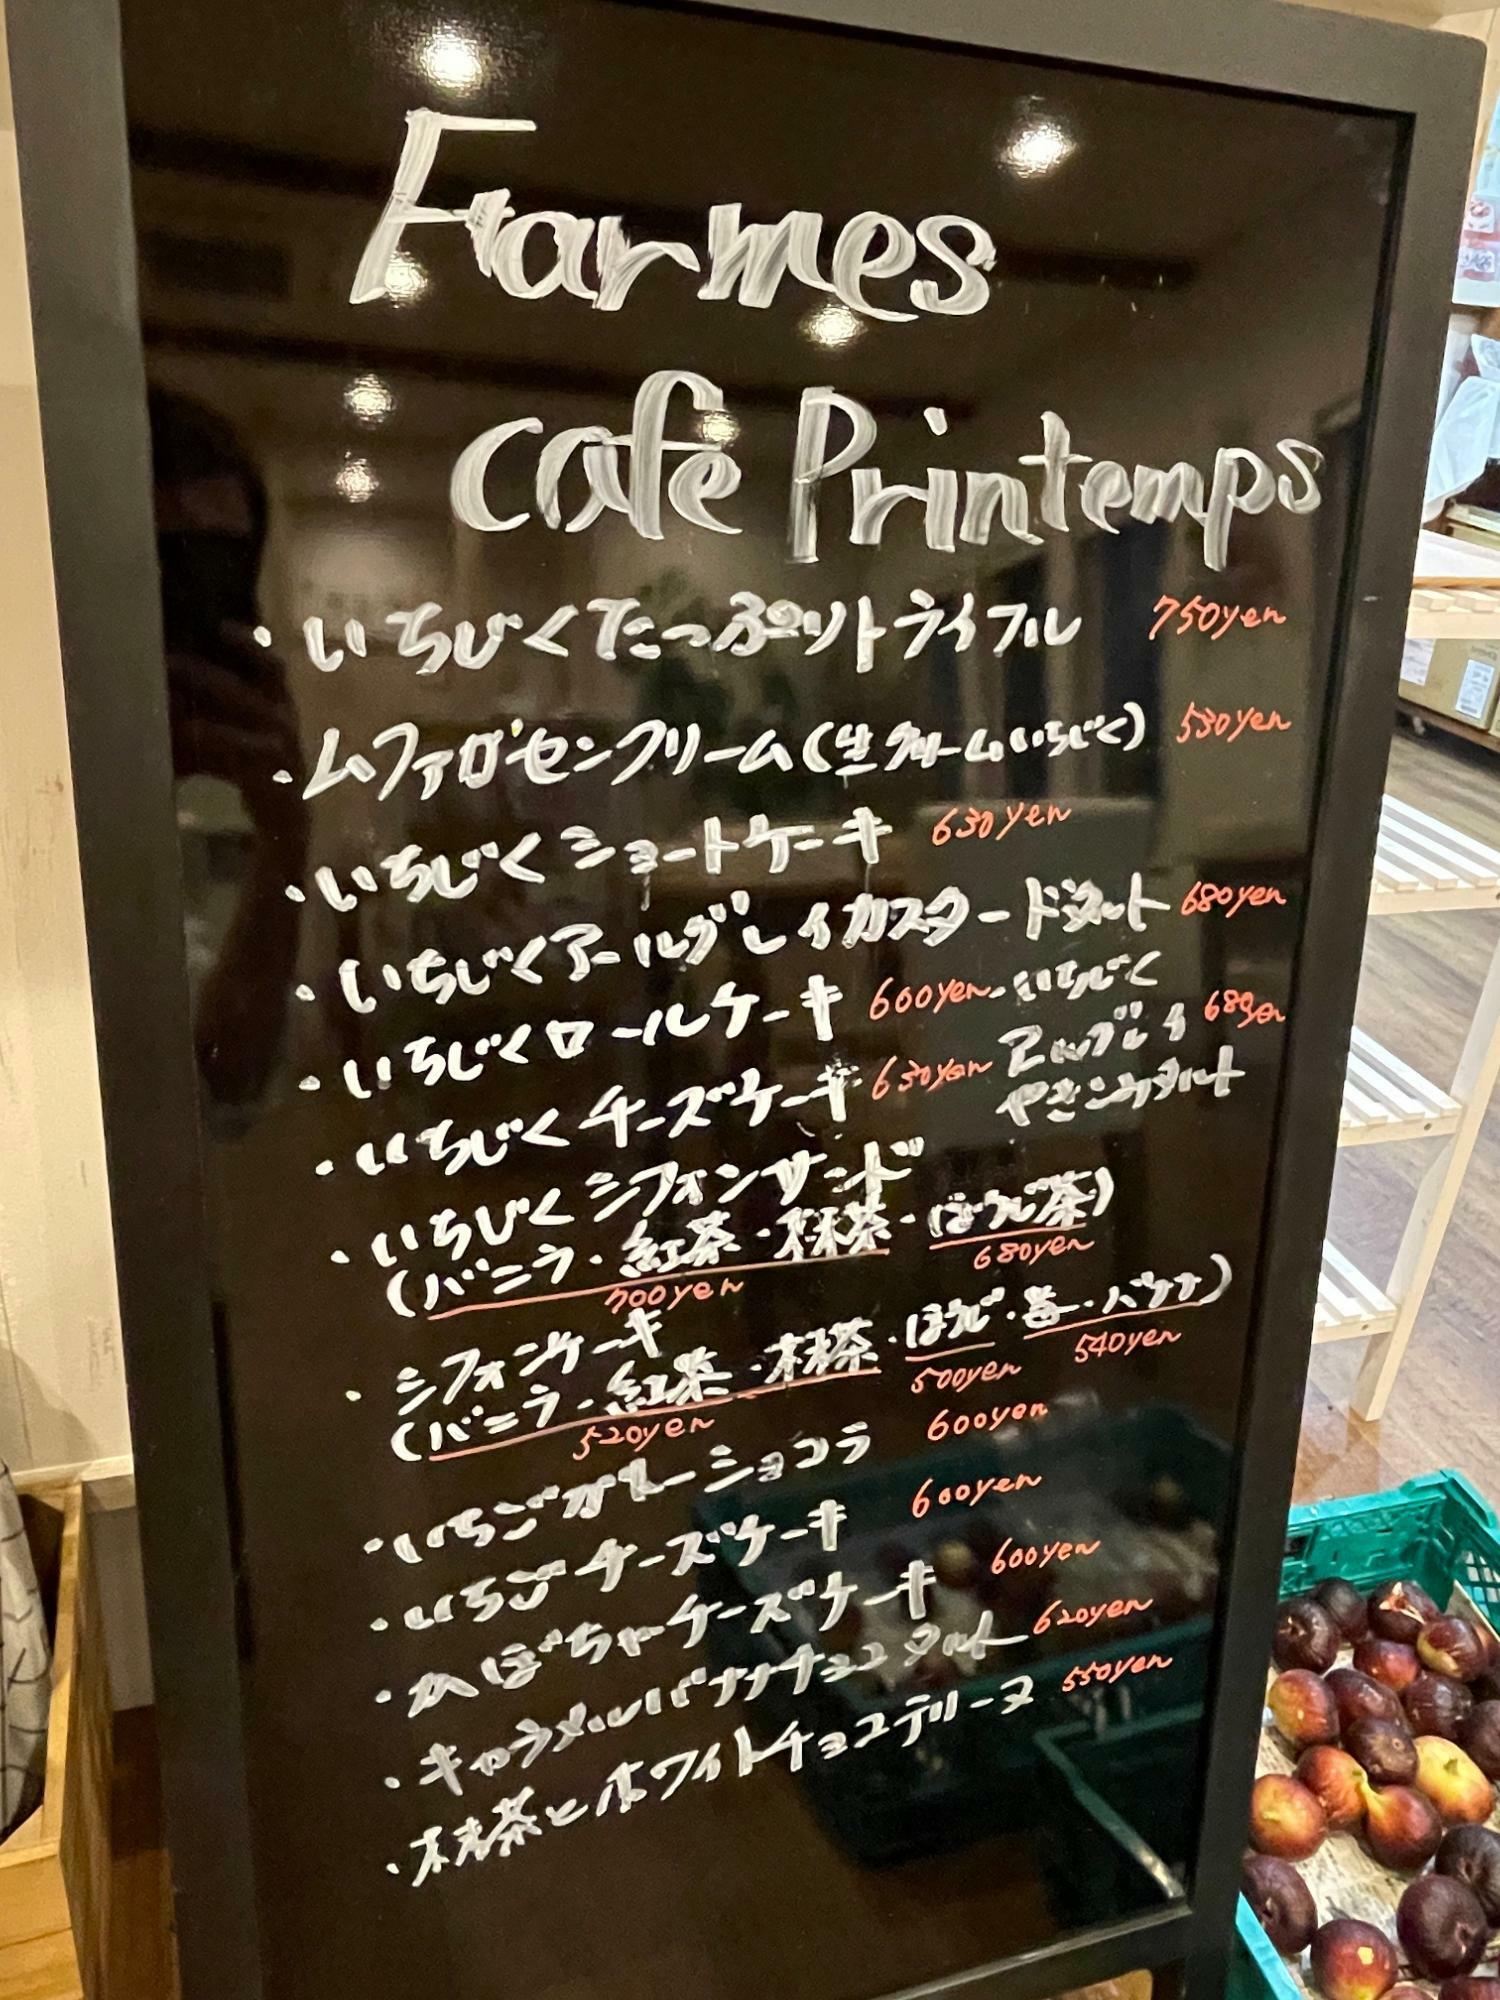 Farmes
cafe Printemps
・いちじくたっぷりトライフル 750yen
・ムファロゼセンクリーム(生クリームいちじく) 530yen
・いちじくショートケーキ 630yen
・いちじくアールグレイカスタードタルト 680yen
・いちじくロールケーキ 600yen
・いちじく
アールグレイ 680yen
やきこみタルト
・いちじくチーズケーキ 630yen
・いちじくシフォンサンド
(バニラ・紅茶・抹茶・ほうじ茶)
700yen 680yen
・シフォンケーキ
(バニラ・紅茶・抹茶・ほうじ・苺・バナナ)
520yen 500yen 540yen
・いちごガトーショコラ 600yen
・いちごチーズケーキ 600yen
・かぼちゃチーズケーキ 600yen
・キャラメルバナナチョコタルト 620yen
・抹茶とホワイトチョコテリーヌ 550yen